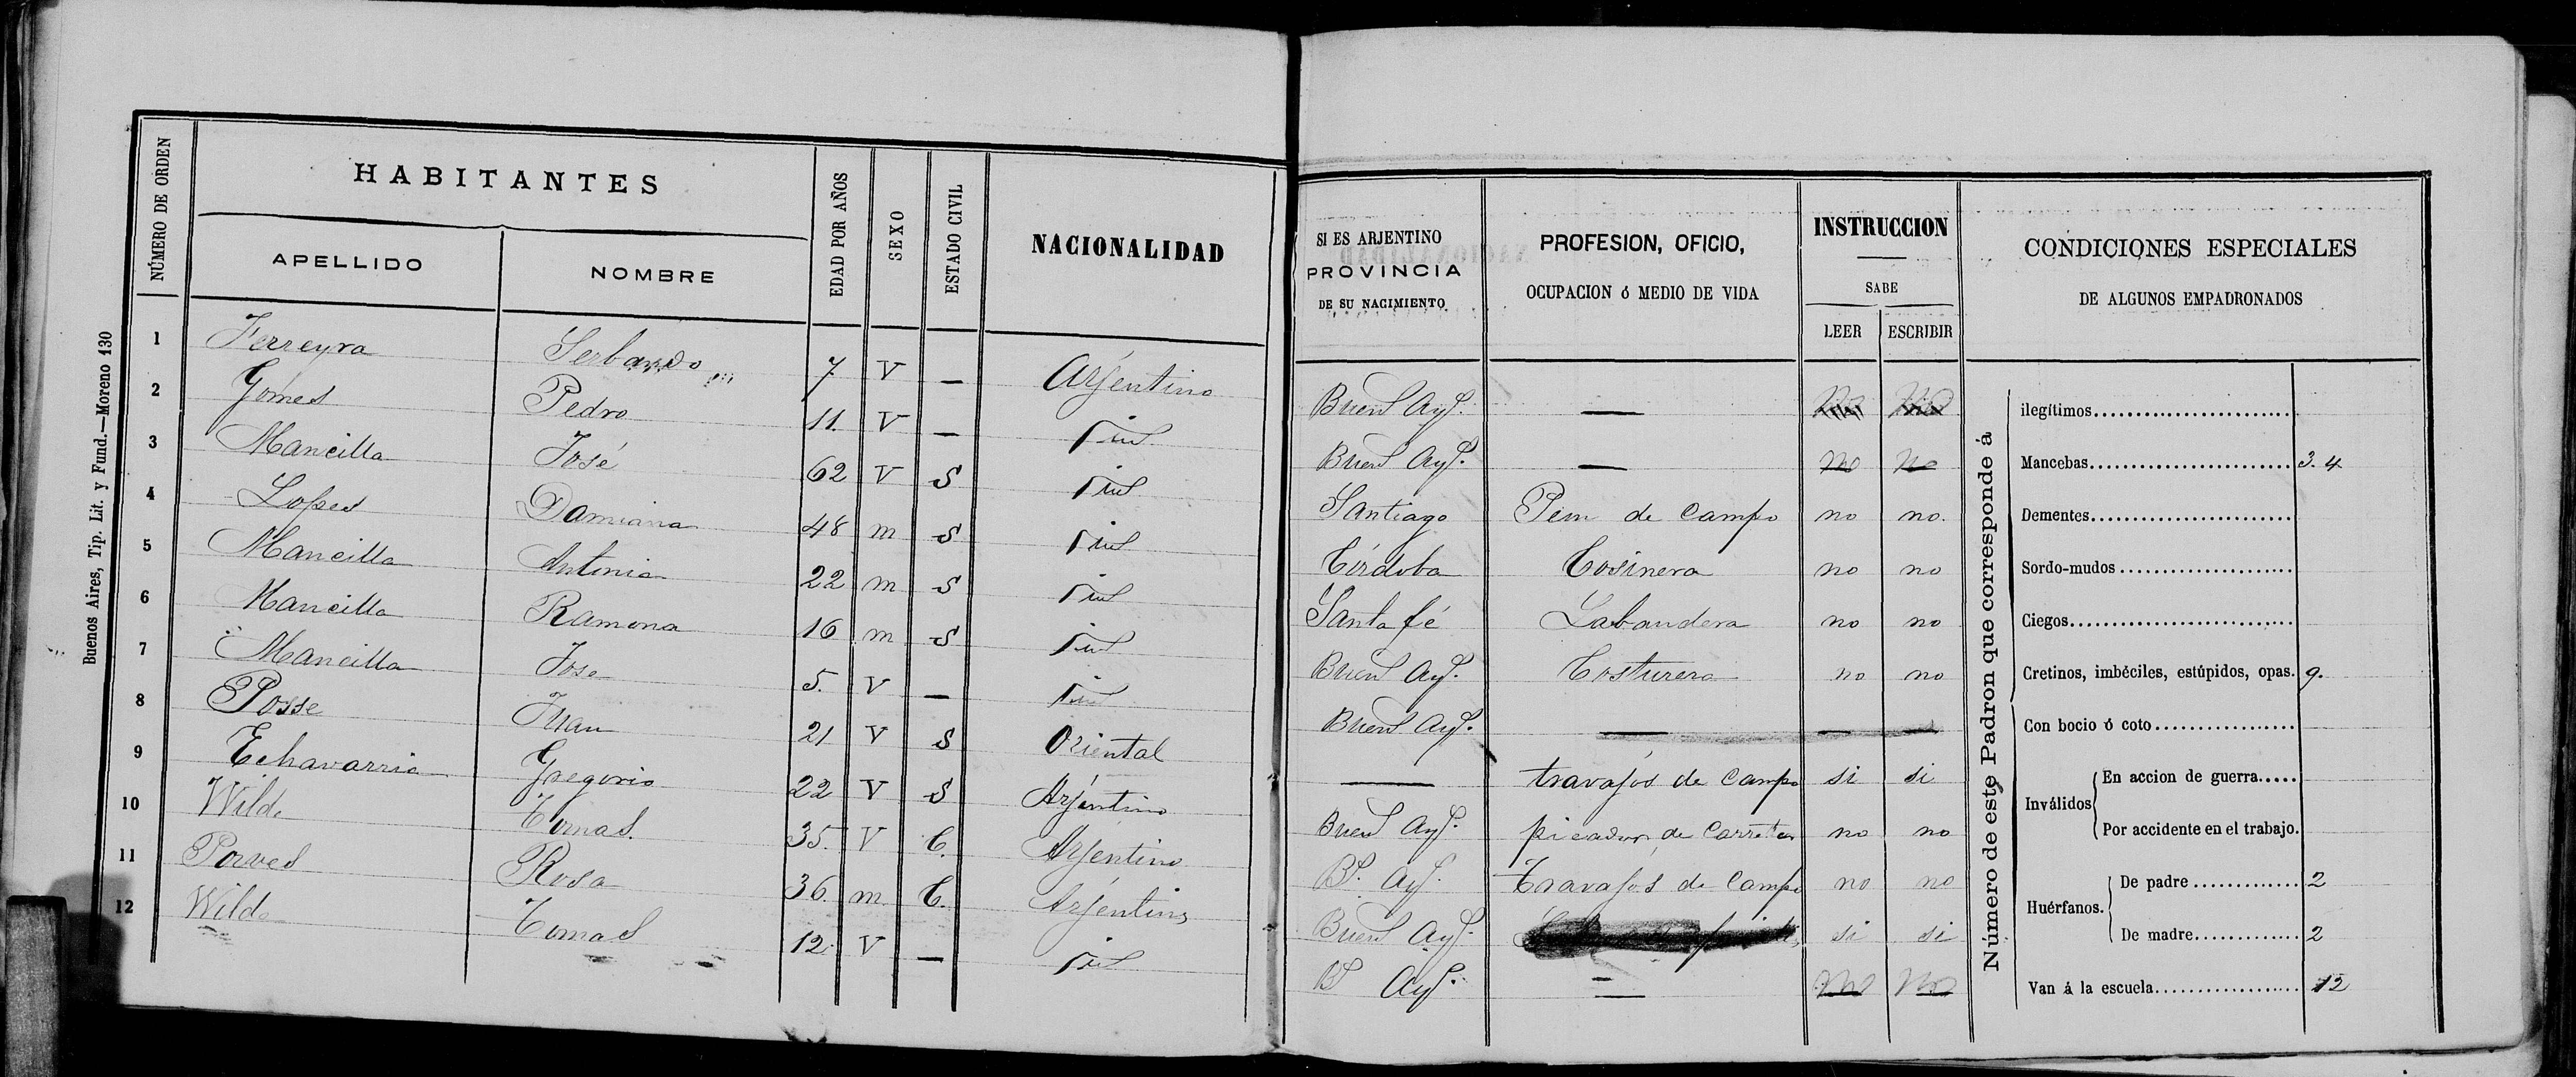 Buenos Aires, Tip. Lit. y Fund.—Moreno 130
NÚMERO DE ORDEN
HABITANTES
APELLIDO
NOMBRE
EDAD POR AÑOS
SEXO
ESTADO CIVIL
NACIONALIDAD
SI ES ARJENTINO
PROVINCIA
DE SU NACIMIENTO
PROFESION, OFICIO,
OCUPACION ó MEDIO DE VIDA
INSTRUCCION
SABE
LEER ESCRIBIR
CONDICIONES ESPECIALES
DE ALGUNOS EMPADRONADOS
1 Ferreyra Serbando 7 V — Arjentino Buens Ays. —
2 Gómes Pedro 11 V — Buens Ays. — no no
3 Mancilla José 62 V S Santiago Peon de Campo no no.
4 Lopes Damiana 48 m S Córdoba Cosinera no no
5 Mancilla Antonia 22 m S Santa fé Labandera no no
6 Mancilla Ramona 16 m S Buens Ays. Costurera no no
7 Mancilla Jose 5. V — Buens Ays. — — —
8 Posse Juan 21 V S Oriental — travajos de Campo si si
9 Echavarria Gregorio 22 V S Arjentino Buens Ays. picador de Carretas no no
10 Wilde Tomas. 35. V C. Arjentino Bs. Ays. Travajos de Campo no no
11 Porves Rosa 36. m C. Arjentina Buens Ays. si si
12 Wilde Tomas 12. V — Bs Ays. — no no
Número de este Padron que corresponde á
ilegítimos
Mancebas 3. 4
Dementes
Sordo-mudos
Ciegos
Cretinos, imbéciles, estúpidos, opas. 9.
Con bocio ó coto
Inválidos
En accion de guerra
Por accidente en el trabajo.
Huérfanos.
De padre 2
De madre 2
Van á la escuela 12